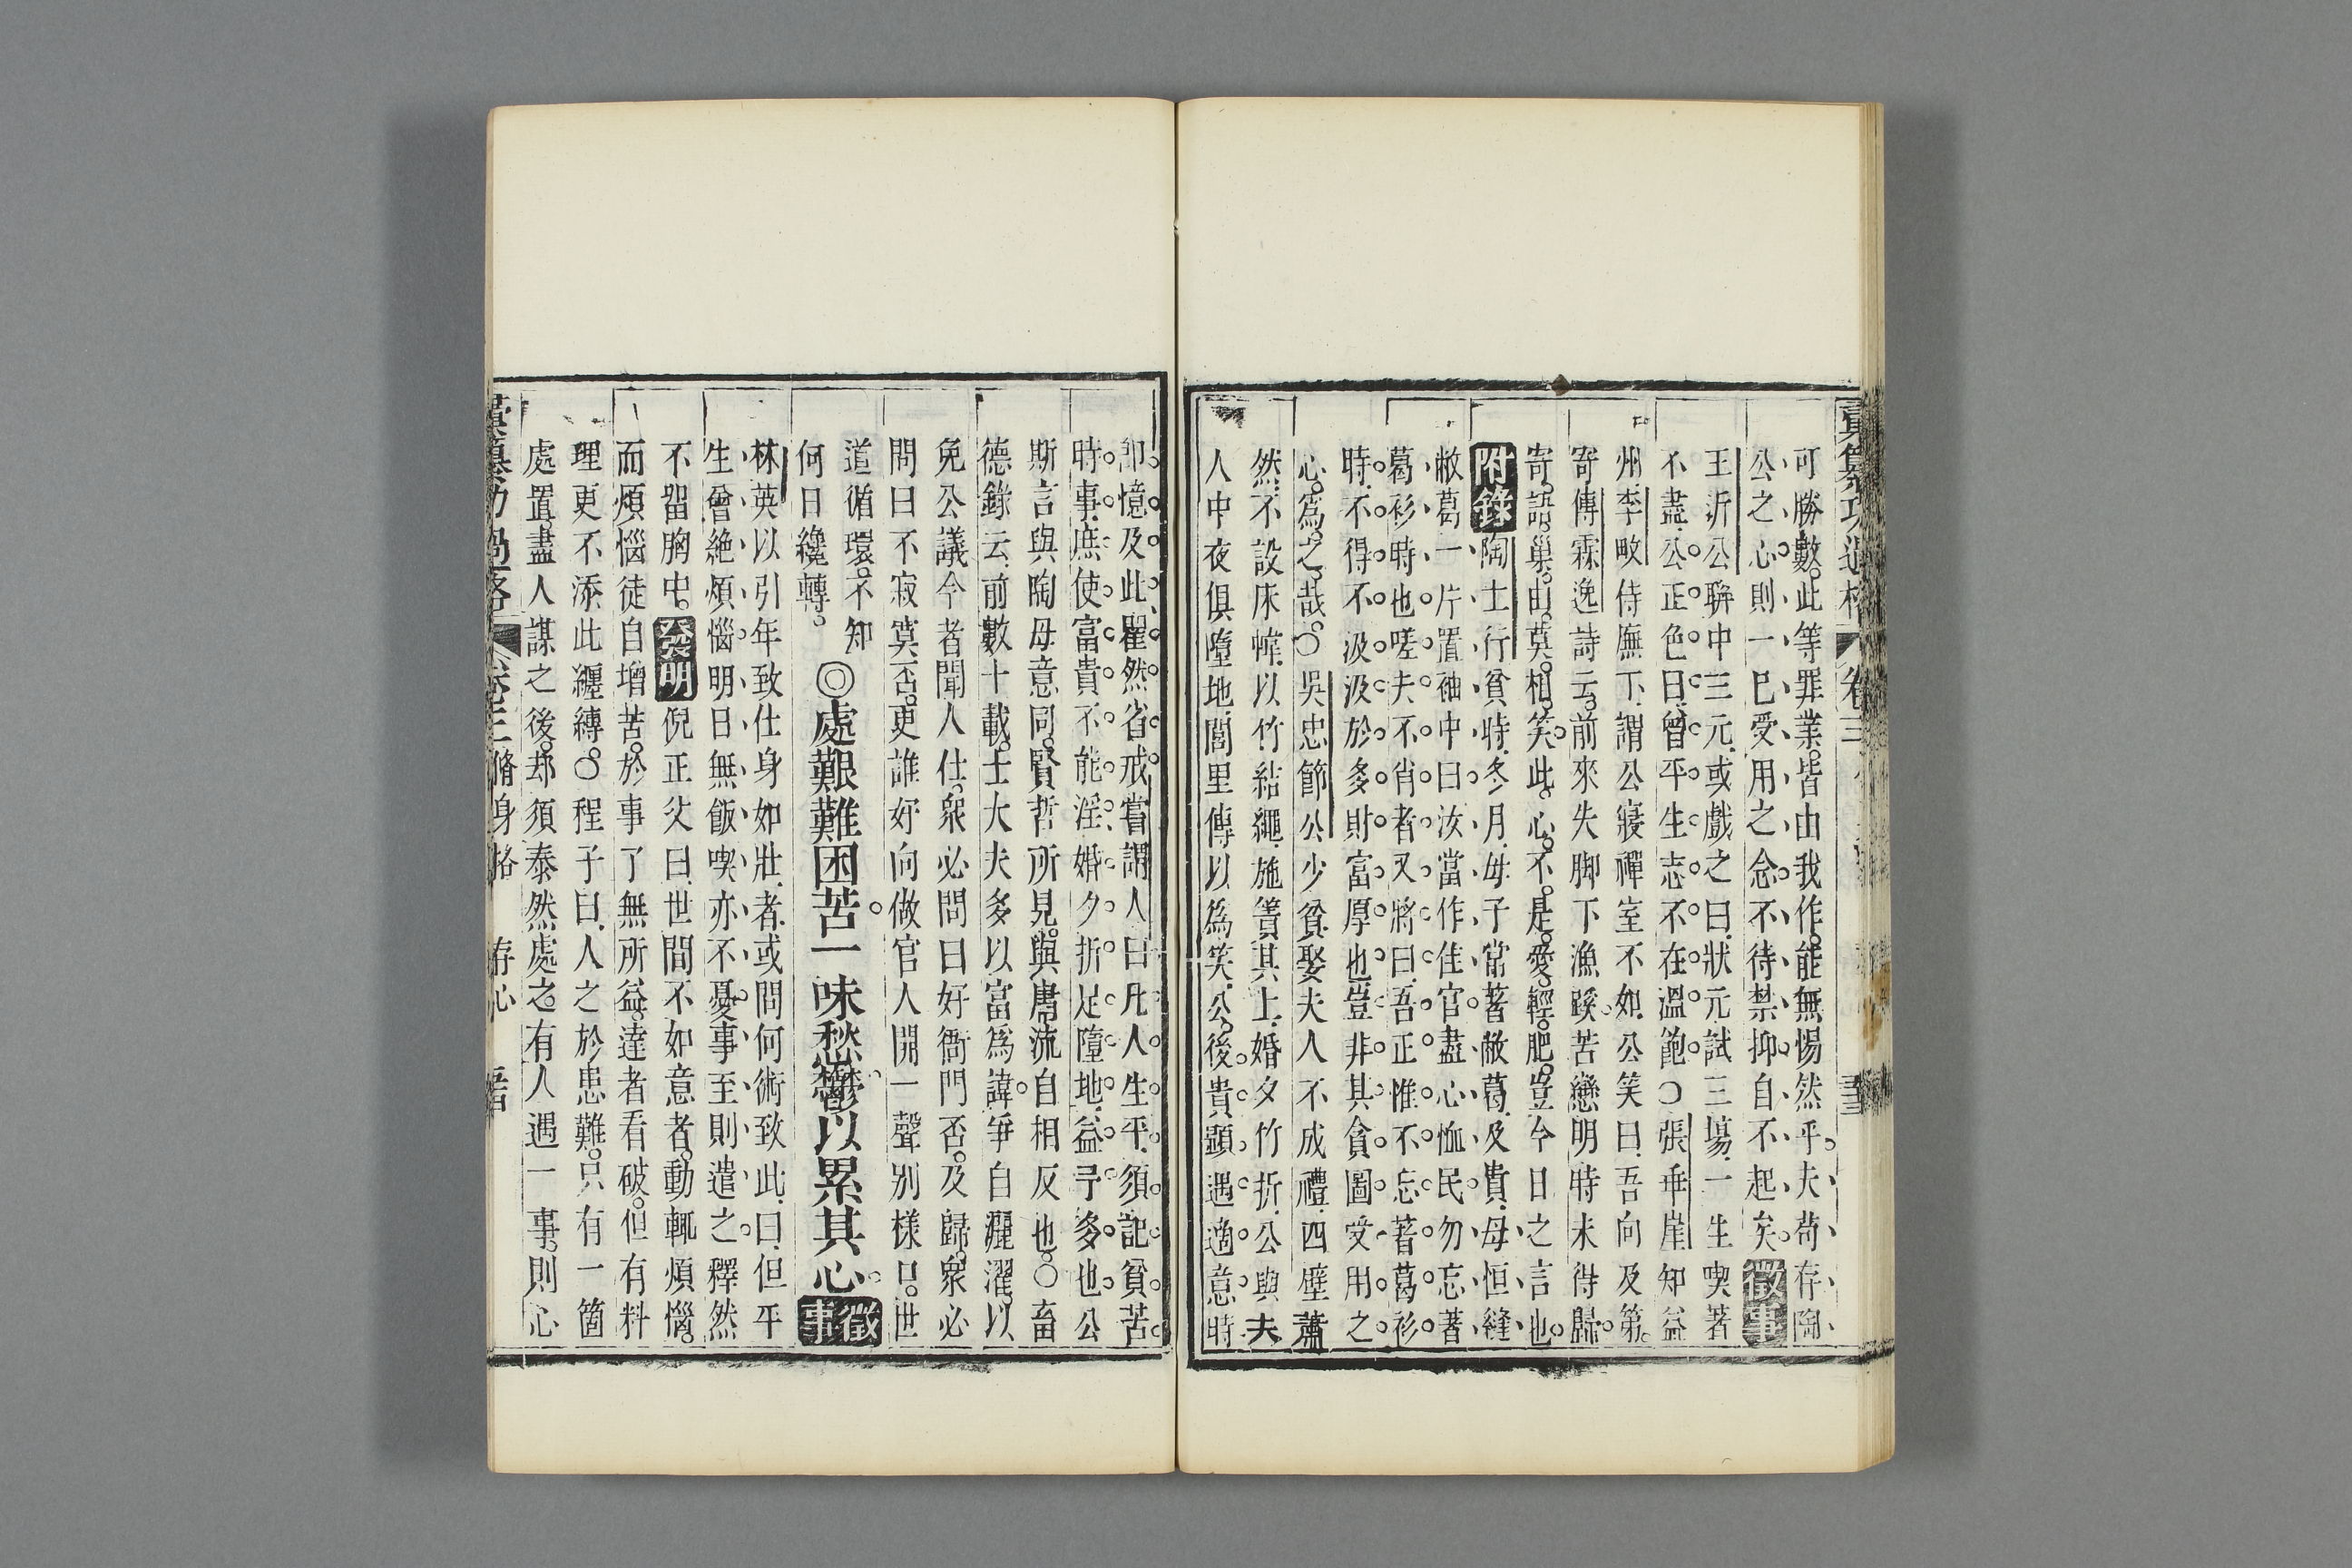 彙纂功過格 卷三
可勝數。此等罪業。皆由我作。能無惕然乎。夫苟存陶
公之心。則一已受用之念。不待禁抑自不起矣。徵事
王沂公聨中三元。或戲之曰。狀元試三塲。一生喫著
不盡。公正色曰。曾平生志不在溫飽。○張乖崖知益
州。李畋侍廡下。謂公寢禪室不如。公笑曰。吾向及第。
寄傅霖逸詩云。前來失脚下漁蹊。苦戀明時未得歸。
寄語巢由莫相笑。此心不是愛輕肥。豈今日之言也。
附錄陶士行貧時。冬月。毋子常著敝葛。及貴。母恒縫
敝葛一片置袖中曰。汝當作佳官。盡心恤民。勿忘著
葛衫時也。嗟夫。不肖者又將曰。吾正惟不忘著葛衫
時。不得不汲汲於多財富厚也。豈非其貪圖受用之
心。爲之哉。○吳忠節公少貧。娶夫人不成禮。四壁蕭
然。不設床幃。以竹結繩。施簀其上。婚夕竹折。公與夫
人中夜俱墮地。閭里傳以爲笑。公後貴顯。遇適意時。
卽憶及此。瞿然省戒。嘗謂人曰。凡人生平。須記貧苦
時事。庶使富貴不能淫。婚夕折足墮地。益予多也。公
斯言與陶母意同。賢哲所見。與庸流自相反也。○畜
德錄云。前數十載。士大夫多以富爲諱。爭自灑濯。以
免公議。今者聞人仕。衆必問曰好衙門否。及歸。衆必
問曰不寂寞否。更誰好向做官人開一聲別樣口。世
道循環。不知
何日纔轉。
◎處艱難困苦。一味愁鬱以累其心。徵事
林英以引年致仕。身如壯者。或問何術致此。曰。但平
生曾絶煩惱。明日無飯喫亦不憂。事至則遣之。釋然
不畱胸中。發明倪正父曰。世間不如意者。動輒煩惱。
而煩惱徒自增苦。於事了無所益。達者看破。但有料
理。更不添此纏縛。○程子曰。人之於患難。只有一箇
處置。盡人謀之後。却須泰然處之。有人遇一事。則心
彙纂功過格 卷三 脩身格 存心